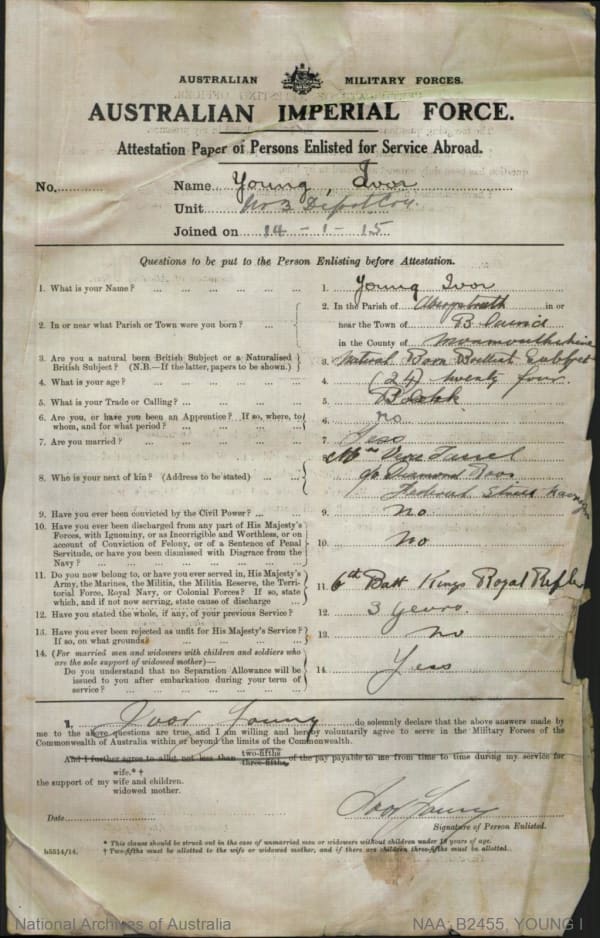 AUSTRALIAN MILITARY FORCES.
AUSTRALIAN IMPERIAL FORCE.
Attestation Paper of Persons Enlisted for Service Abroad.
No. Name Young, Ivor
Unit No 3 Depot Coy.
Joined on 14-1-15
Questions to be put to the Person Enlisting before Attestation.
1. What is your Name? ... 1. Young Ivor
2. In or near what Parish or Town were you born? ... 2. In the Parish of in or
near the Town of
in the County of Monmouthshire
3. Are you a natural born British Subject or a Naturalised
British Subject? (N.B.—If the latter, papers to be shown.) 3. Natural Born Subject
4. What is your age? ... 4. (24) twenty four
5. What is your Trade or Calling? ... 5.
6. Are you, or have you been an Apprentice? If so, where, to
whom, and for what period? ... 6. no
7. Are you married? ... 7. Yess
8. Who is your next of kin? (Address to be stated) ... 8. Mrs
c/o Diamond Bros
Street
9. Have you ever been convicted by the Civil Power? ... 9. No
10. Have you ever been discharged from any part of His Majesty's
Forces, with Ignominy, or as Incorrigible and Worthless, or on
account of Conviction of Felony, or of a Sentence of Penal
Servitude, or have you been dismissed with Disgrace from the
Navy? ... 10. No
11. Do you now belong to, or have you ever served in, His Majesty's
Army, the Marines, the Militia, the Militia Reserve, the Terri-
torial Force, Royal Navy, or Colonial Forces? If so, state
which, and if not now serving, state cause of discharge ... 11. 6th Batt Kings Royal Rifles
12. Have you stated the whole, if any, of your previous Service? 12. 3 years.
13. Have you ever been rejected as unfit for His Majesty's Service?
If so, on what grounds? ... 13. no
14. (For married men and widowers with children and soldiers who
are the sole support of widowed mother)—
Do you understand that no Separation Allowance will be
issued to you after embarkation during your term of
service? ... 14. Yess
I, Ivor Young do solemnly declare that the above answers made by
me to the above questions are true, and I am willing and hereby voluntarily agree to serve in the Military Forces of the
Commonwealth of Australia within or beyond the limits of the Commonwealth.
And I further agree to allot not less than two-fifths three-fifths of the pay payable to me from time to time during my service for
wife.*†
the support of my wife and children.
widowed mother.
Ivor Young
Date Signature of Person Enlisted.
* This clause should be struck out in the case of unmarried men or widowers without children under 18 years of age.
b5514/14. † Two-fifths must be allotted to the wife or widowed mother, and if there are children three-fifths must be allotted.
National Archives of Australia NAA: B2455, YOUNG I